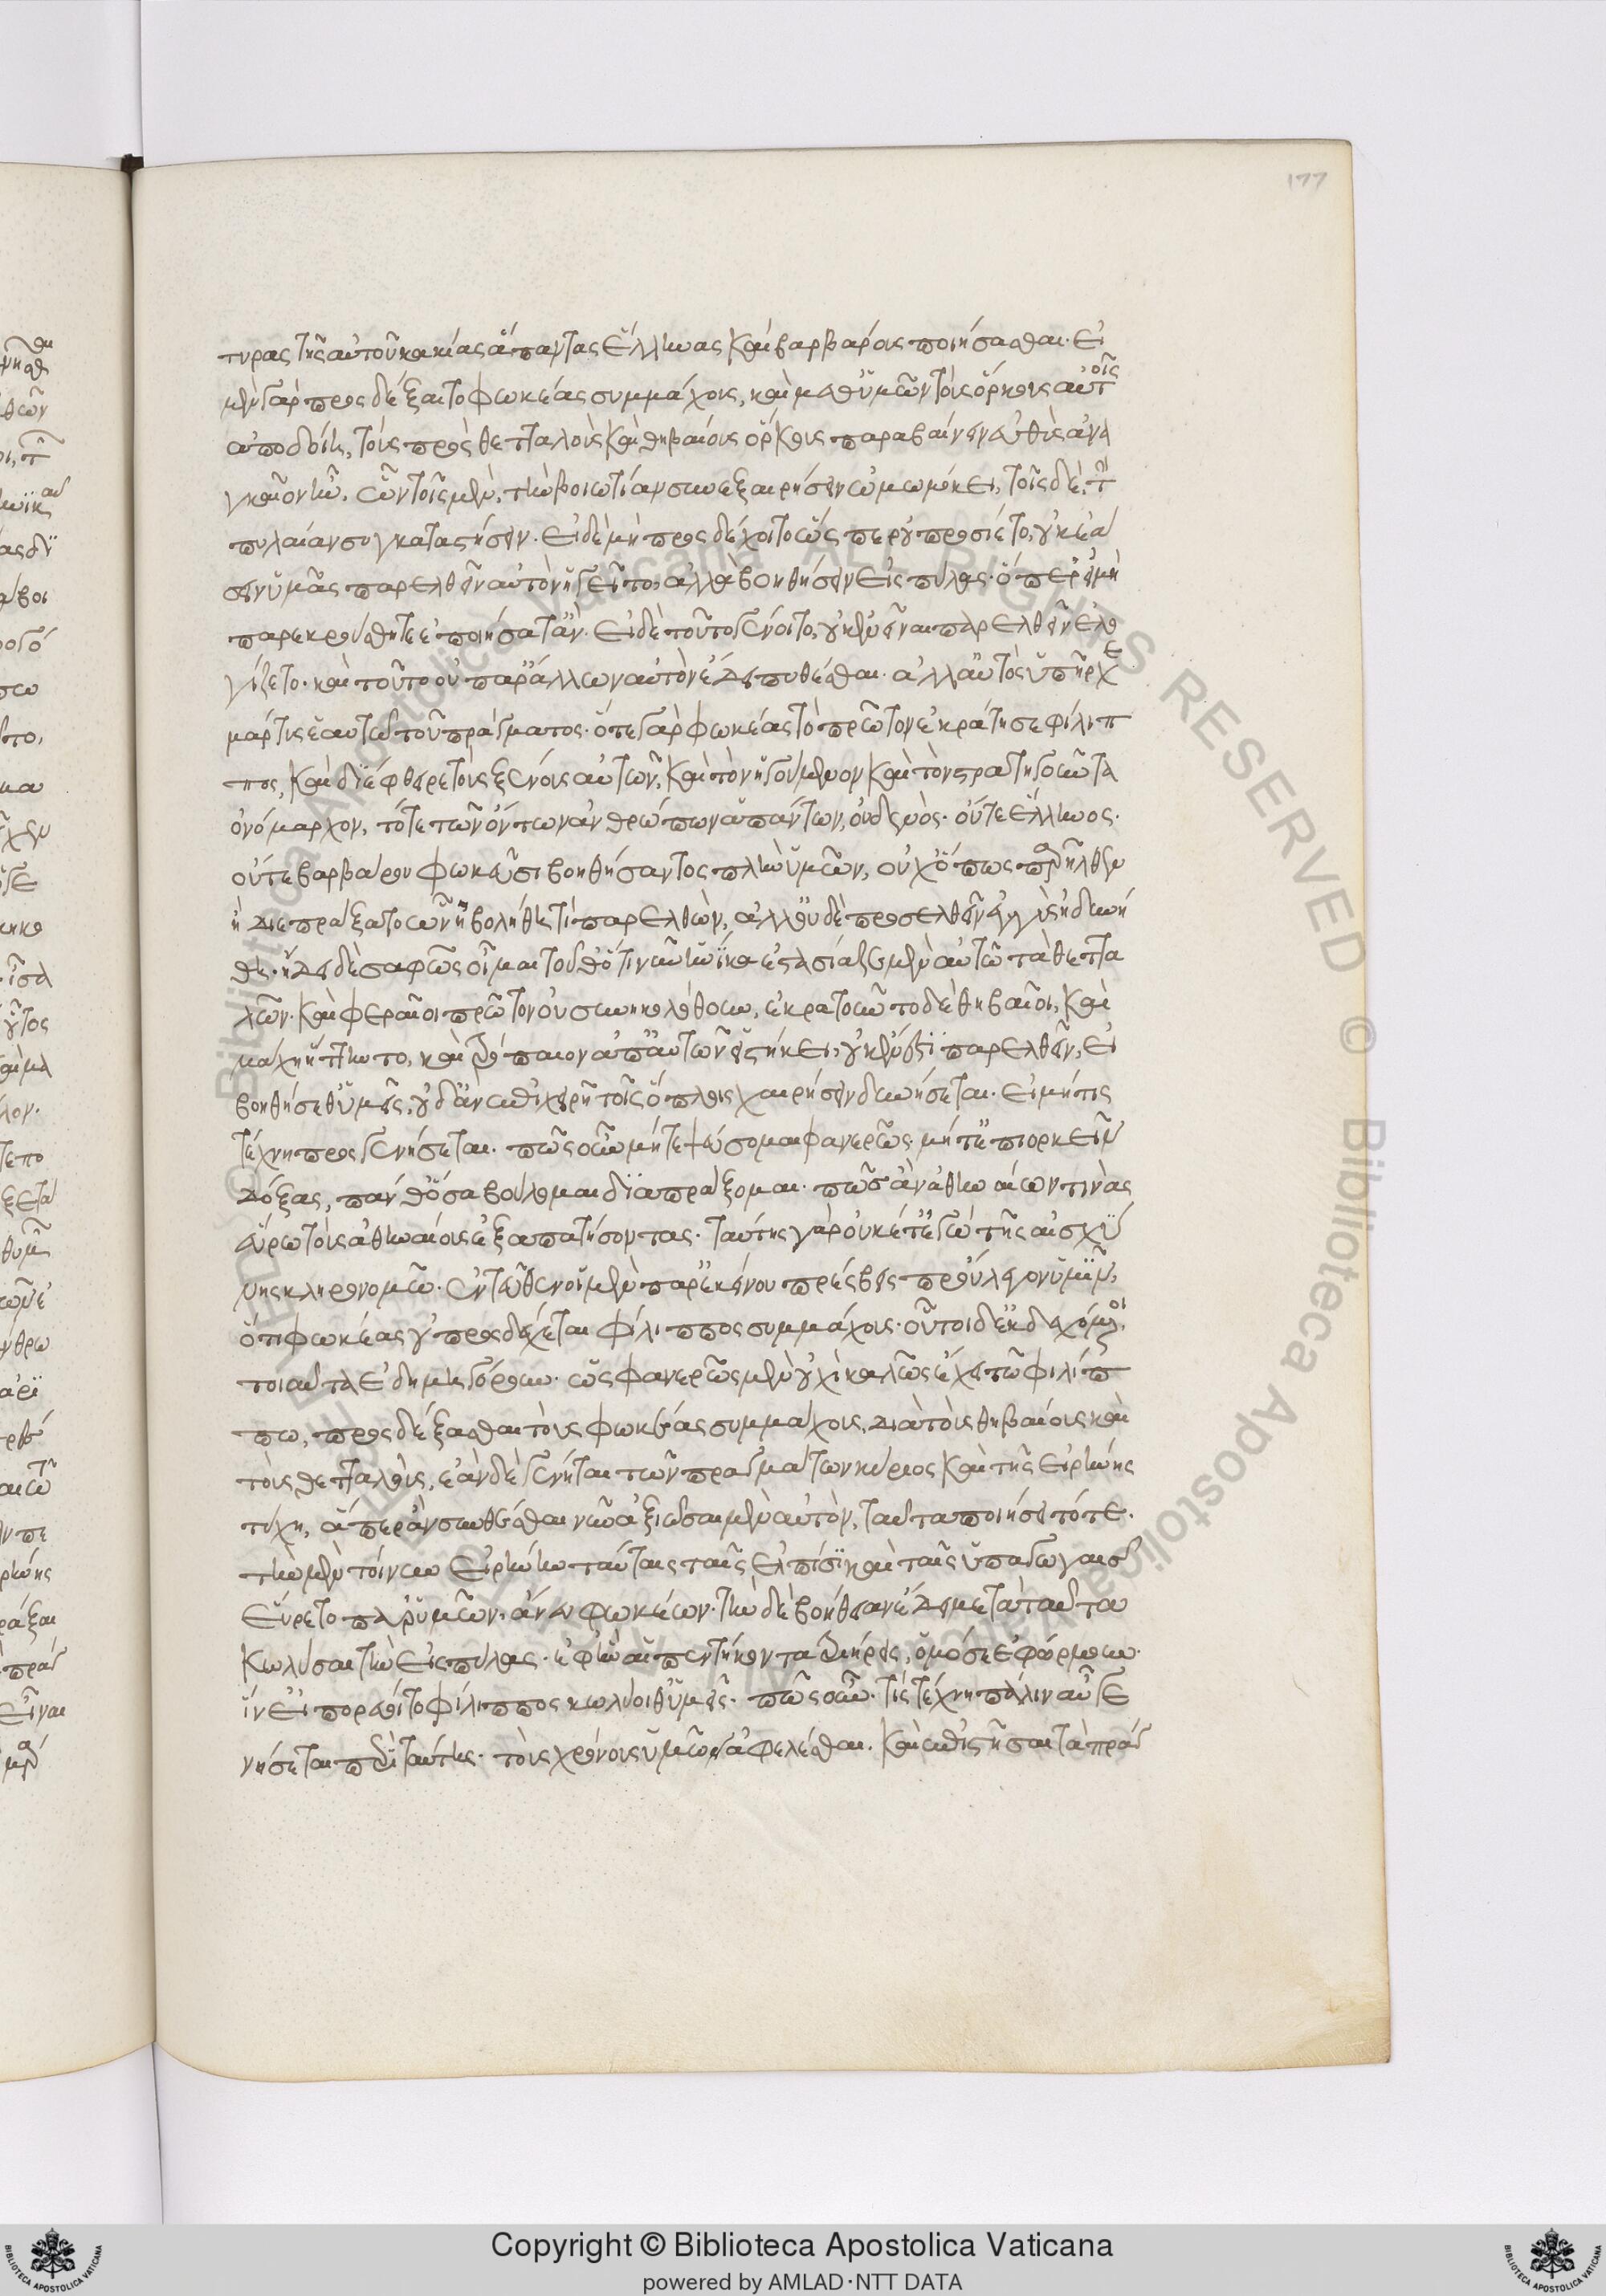 177
τυρας τῆς αὐτοῦ κακίας ἅπαντας ἕλληνας καὶ βαρβάρους ποιήσασθαι. εἰ
μὲν γὰρ προςδέξαιτο φωκέας συμμάχους, καὶ μεθ' ὑμῶν τοὺς ὅρκους αὐτοῖς
ἀποδοίη, τοὺς πρὸς θετταλοὺς καὶ θηβαίους ὅρκους παραβαίνειν εὐθὺς ἀνα
γκαῖον ἦν. ὧν τοῖς μὲν, τὴν βοιωτίαν συνεξαιρήσειν ὠμωμόκει, τοῖς δὲ, τὴν
πυλαίαν συγκαταστήσειν. εἰ δὲ μὴ προςδέχοιτο ὥσπερ οὐ προσίετο, οὐκ ἐά
σειν ὑμᾶς παρελθεῖν αὐτὸν ἡγεῖτο, ἀλλὰ βοηθήσειν εἰς πύλας. ὅπερ εἰ μὴ
παρεκρούσθητε ἐποιήσατ' ἄν. εἰ δὲ τοῦτο γένοιτο, οὐκ ἐνεῖναι παρελθεῖν ἐλο
γίζετο. καὶ τοῦτο οὐ παρ' ἄλλων αὐτὸν ἔδει πυθέσθαι. ἀλλ' αὐτὸς ὑπῆρχε
μάρτυς ἑαυτῷ τοῦ πράγματος. ὅτε γὰρ φωκέας τὸ πρῶτον ἐκράτησε φίλιπ
πος, καὶ διέφθειρε τοὺς ξένους αὐτῶν, καὶ τὸν ἡγούμενον καὶ τὸν στρατηγοῦντα
ὀνόμαρχον, τότε τῶν ὄντων ἀνθρώπων ἁπάντων, οὐδενὸς. οὔτε ἕλληνος.
οὔτε βαρβάρου φωκεῦσι βοηθήσαντος πλὴν ὑμῶν, οὐχ ὅπως παρῆλθεν
ἢ διεπράξατο ὧν ἠβουλήθη τι παρελθὼν, ἀλλ' οὐδὲ προσελθεῖν ἐγγὺς ἠδυνή
θη. ᾔδει δὲ σαφῶς οἶμαι τοῦθ' ὅτι νῦν ἡνίκα ἐστασίαζε μὲν αὐτῷ τὰ θεττα
λῶν. καὶ φεραῖοι πρῶτον οὐ συνηκολούθουν, ἐκρατοῦντο δὲ θηβαῖοι, καὶ
μάχη ἥττηντο, καὶ τρόπαιον ἀπ' αὐτῶν εἱστήκει, οὐκ ἔνεστι παρελθεῖν, εἰ
βοηθήσεθ' ὑμεῖς, οὐδ' ἂν ἐπιχειρῇ τοῖς ὅπλοις χαιρήσειν δυνήσεται. εἰ μή τις
τέχνη προςγενήσεται. πῶς οὖν μήτε ψεύσομαι φανερῶς. μήτ' ἐπιορκεῖν
δόξας, πάνθ' ὅσα βούλομαι διαπράξομαι. πῶς ἂν ἀθηναίων τινὰς
εὕρω τοὺς ἀθηναίους ἐξαπατήσοντας. ταύτης γὰρ οὐκέτ' ἐγὼ τῆς αἰσχύ
νης κληρονομῶ. ἐντεῦθεν οἱ μὲν παρ' ἐκείνου πρέσβεις προὔλεγον ὑμῖν,
ὅτι φωκέας οὐ προςδέχεται φίλιππος συμμάχους. οὗτοι δ' ἐκδεχόμενοι,
τοιαῦτα ἐδημηγόρουν. ὡς φανερῶς μὲν οὐχὶ καλῶς ἔχει τῷ φιλίπ
πω, προςδέξασθαι τοὺς φωκέας συμμάχους, διὰ τοὺς θηβαίους καὶ
τοὺς θετταλοὺς, ἐὰν δὲ γένηται τῶν πραγμάτων κύριος καὶ τῆς εἰρήνης
τύχη, ἅπερ ἂν συνθέσθαι νῦν ἀξιώσαιμεν αὐτὸν, ταῦτα ποιήσει τότε.
τὴν μὲν τοίνυν εἰρήνην ταύταις ταῖς ἐλπίσι καὶ ταῖς ὑπαγωγαῖς
εὕρετο παρ' ὑμῶν, ἄνευ φωκέων. τὴν δὲ βοήθειαν ἔδει μετὰ ταῦτα
κωλῦσαι τὴν εἰς πύλας. ἐφ' ἣν αἱ πεντήκοντα τριήρεις, ὅμως ἐφώρμουν.
ἵν' εἰ πορεύοιτο φίλιππος κωλύοιθ' ὑμεῖς. πῶς οὖν. τίς τέχνη πάλιν αὖ γε
νήσεται περὶ ταύτης. τοὺς χρόνους ὑμῶν ἀφελέσθαι. καὶ ἐπιστῆσαι τὰ πράγ
Copyright © Biblioteca Apostolica Vaticana
powered by AMLAD·NTT DATA